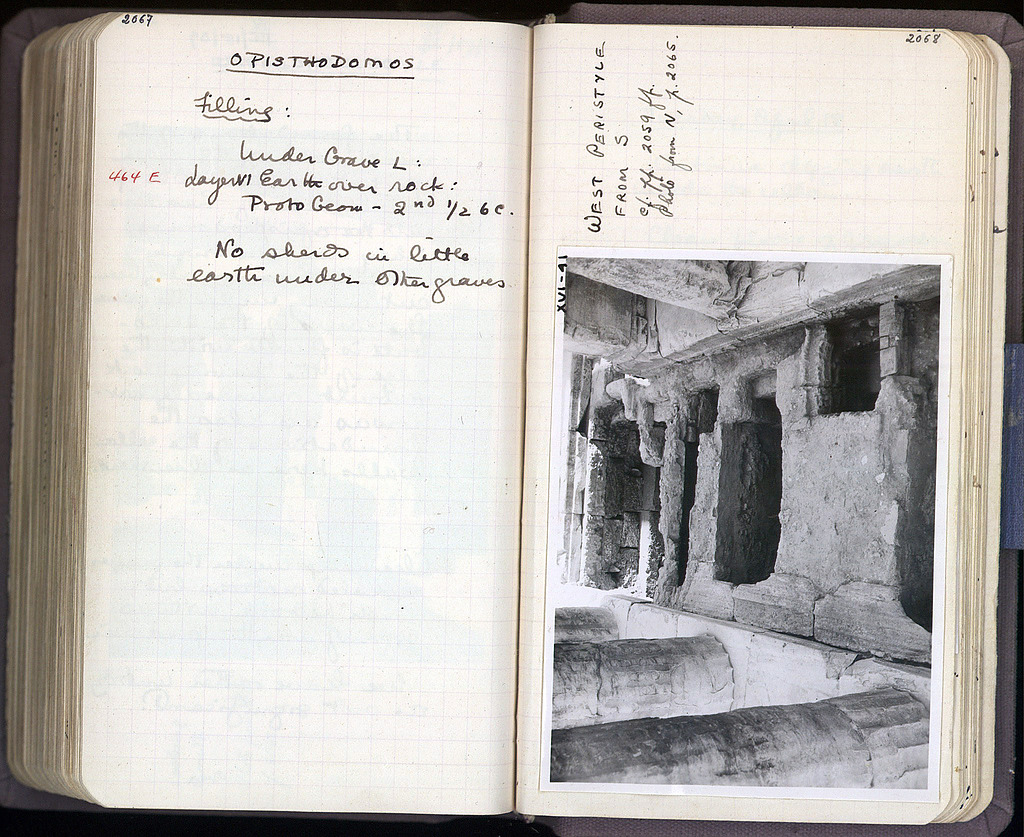 2067
OPISTHODOMOS
Filling:
Under Grave L:
464 E
Layer VI Earth over rock:
Proto Geom - 2nd 1/2 6c.
No sherds in little
earth under other graves
2068
WEST PERISTYLE
FROM S
cf. pp. 2059 ff.
Photo from N, p. 2065.
XVI-91